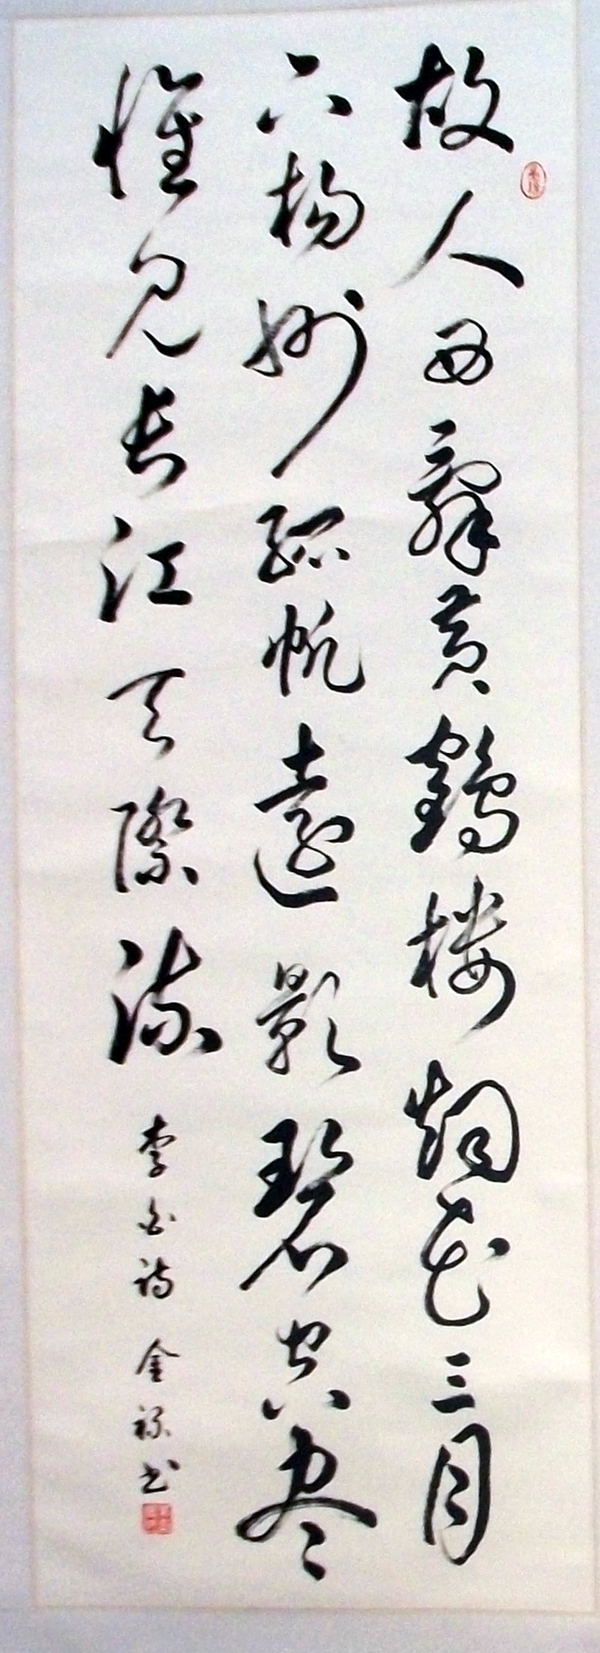 故人西辭黃鶴樓烟花三月
下揚州孤帆遠影碧空尽
惟見長江天際流
李白詩 金书